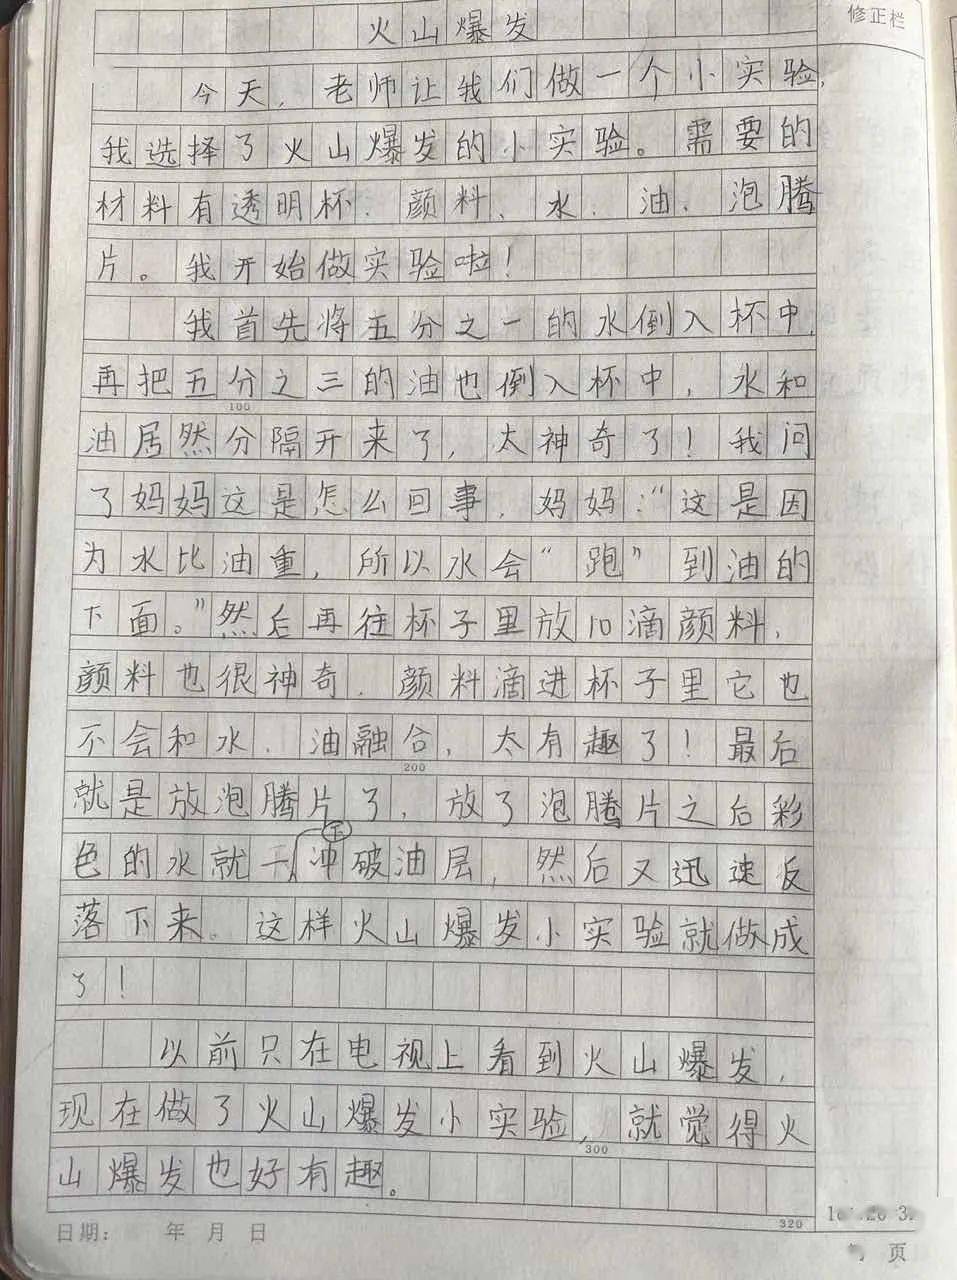 修正栏
火山爆发
今天，老师让我们做一个小实验，
我选择了火山爆发的小实验。需要的
材料有透明杯、颜料、水、油、泡腾
片。我开始做实验啦！
我首先将五分之一的水倒入杯中，
再把五分之三的油也倒入杯中，水和
100
油居然分隔开来了，太神奇了！我问
了妈妈这是怎么回事，妈妈：“这是因
为水比油重，所以水会“跑”到油的
下面。”然后再往杯子里放10滴颜料，
颜料也很神奇，颜料滴进杯子里它也
不会和水、油融合，太有趣了！最后
200
就是放泡腾片了，放了泡腾片之后彩
色的水就一下冲破油层，然后又迅速反
落下来。这样火山爆发小实验就做成
了！
以前只在电视上看到火山爆发，
现在做了火山爆发小实验，就觉得火
300
山爆发也好有趣。
320
日期： 年 月 日
页